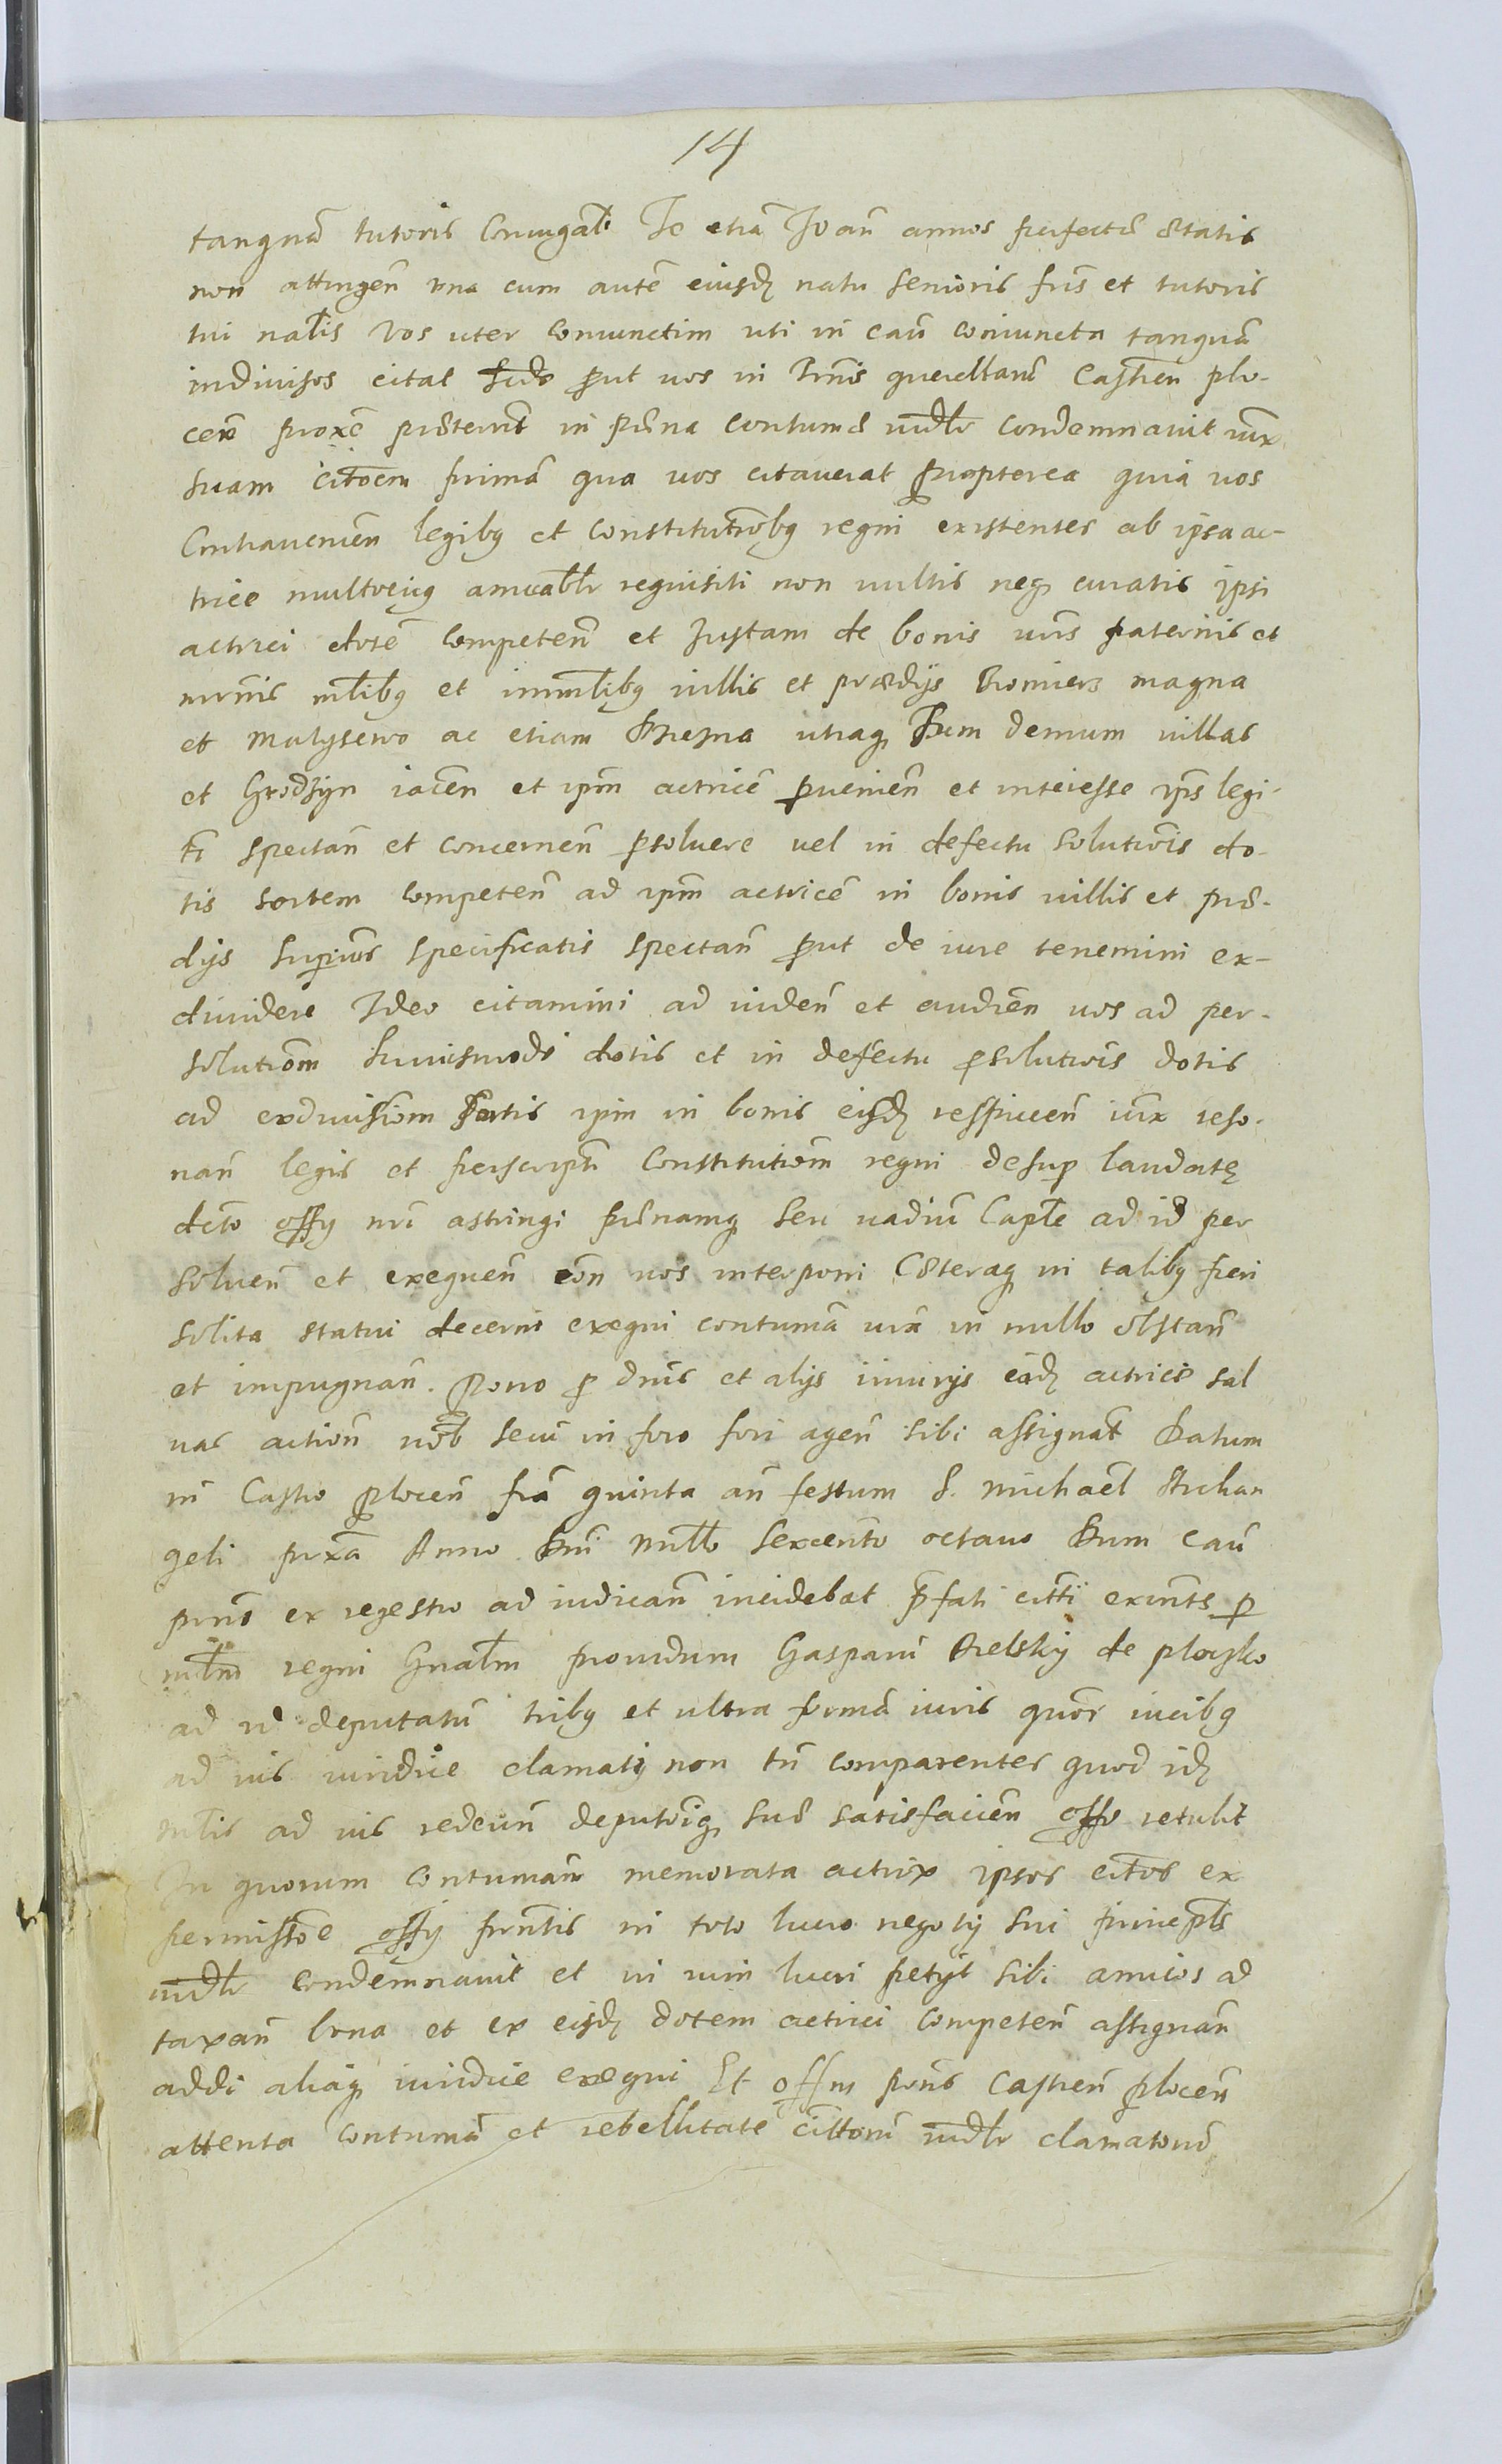 14
tanquā tutoris Coniugalē Te etiā Joan̄ annos perfectæ ætatis
non attingen̄ una cum autē eiusdȝ natu senioris fris̄ et tutoris
tui nalīs Vos uter coniunctim uti in cau̅ coniuncta tanquā
indiuisos citat p̱ut uos in querellarū Castren̄ plo-
cen̄ proxē præterit̄ in pæna contumæ iudlr̄ condemnauit iux̄
suam cito̅em primā qua uos citauerat propterea quia uos
Contrauenien̄ legibꝫ et constitutio̅ibꝫ regni existentes ab ipsa ac-
trice multociꝫ amicablr̄ requisiti non uultis neqꝫ curatis ipsi
actrici dotē competen̄ et Justam de bonis urīs paternis et
mr̄nis mlībꝫ et immlībꝫ uillis et prædijs Romierz magna
et Malyseuo ac etiam utraqꝫ demum uillas
et Grodzyn iacen̄ et ipm̄ actricē ꝑuenien̄ et interesse ips̄ legi-
tī spectan̄ et concernen̄ ꝑsoluere uel in defectu solutio̅is do-
tis sortem competen̄ ad ipm̄ actricē in bonis uillis et præ-
dijs superius specificatis spectan̄ p̱ut de iure tenemini ex-
diuidere Ideo citamini ad uiden̄ et audien̄ uos ad per-
solutio̅m huiusmodi dotis et in defectu ꝑsolutio̅is dotis
ad exdiuisio̅m sortis ipm̄ in bonis eisdȝ respicien̄ iux̄ reso-
nan̄ legis et perscripti̅ Constitutio̅m regni desuꝑ laudatę
dcto̅ offij nrī astringi pænamqꝫ seu uadiū Caplē ad id per
soluen̄ et exequen̄ con̄ uos interponi Cæteraqꝫ in talibꝫ fieri
solita statui decerni exequi contumā urā in nullo obstan̄
et impugnan̄. Porro ꝑ dnis̄ et alijs iniurijs eidȝ actrici sal
uas action̄ uob̄ secū in foro fori agen̄ sibi assignat̄ Datum
in Castro plocen̄ friā quinta an̄ festum S. Michael̄ Archan
geli proxā Anno Dnī Mill̄o Sexcento̅ octauo Dum cau̅
prns̄ ex regestro ad iudican̄ incidebat p̄fati citti̅ exun̄ts ꝑ
mlm̄ regni Gnalm̄ prouidum Gasparū Bielsky de plocsko
ad id deputatū tribꝫ et ultra formā iuris quor̄ uicibꝫ
ad ius iuridice clamatij non tn̄ comparentes quod idȝ
mlīs ad ius redeun̄ deputo̅iqꝫ suæ satisfacien̄ offo retulit
In quorum contumā memorata actrix ipsos citos̄ ex
permisso̅e offij prntis̄ in toto lucro negotij sui principl̄s
iudlr̄ condemnauit et in uim lucri petijt sibi amicos ad
taxan̄ bona et ex eisdȝ dotem actrici competen̄ assignan̄
addi aliaqꝫ iuridice exequi Et offm prns̄ Castren̄ plocen̄
attenta contumā et rebellitatē citto̅rū iudlr̄ clamatorū